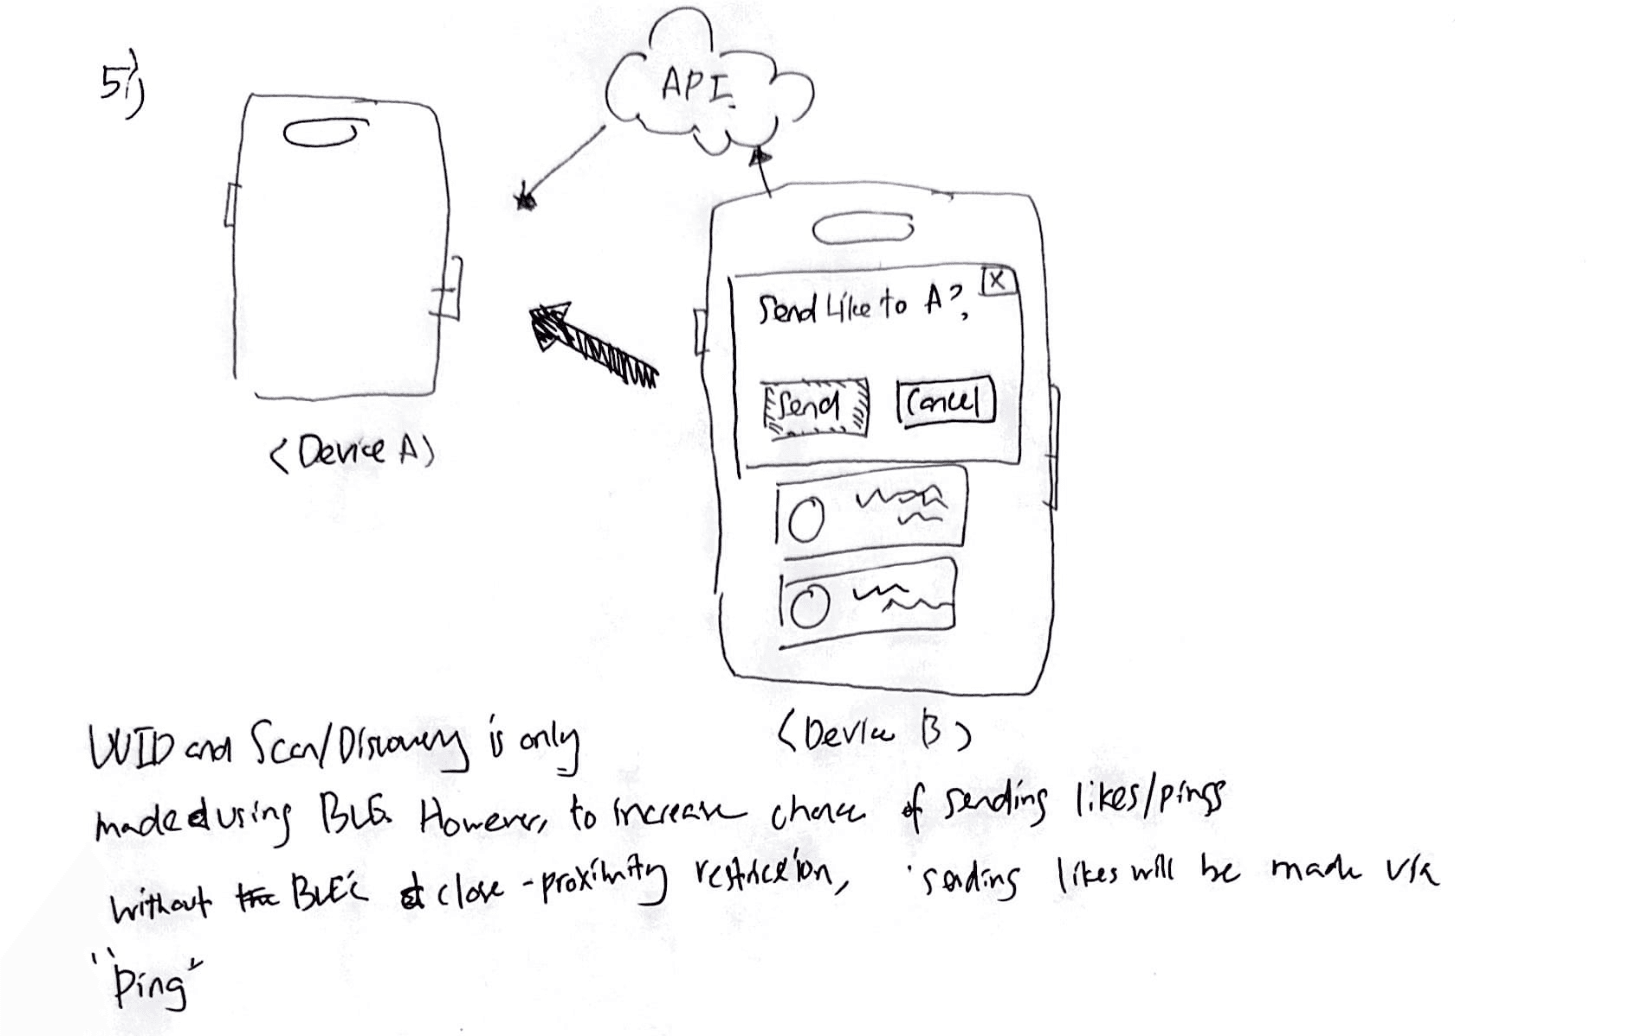 5)
API.
Send Like to A?
X
Send
Cancel
<Device A>
<Device B>
UUID and Scan/Discovery is only
made using BLE. However, to increase chance of sending likes/pings
without BLE's close-proximity restriction, sending likes will be made via
"Ping"